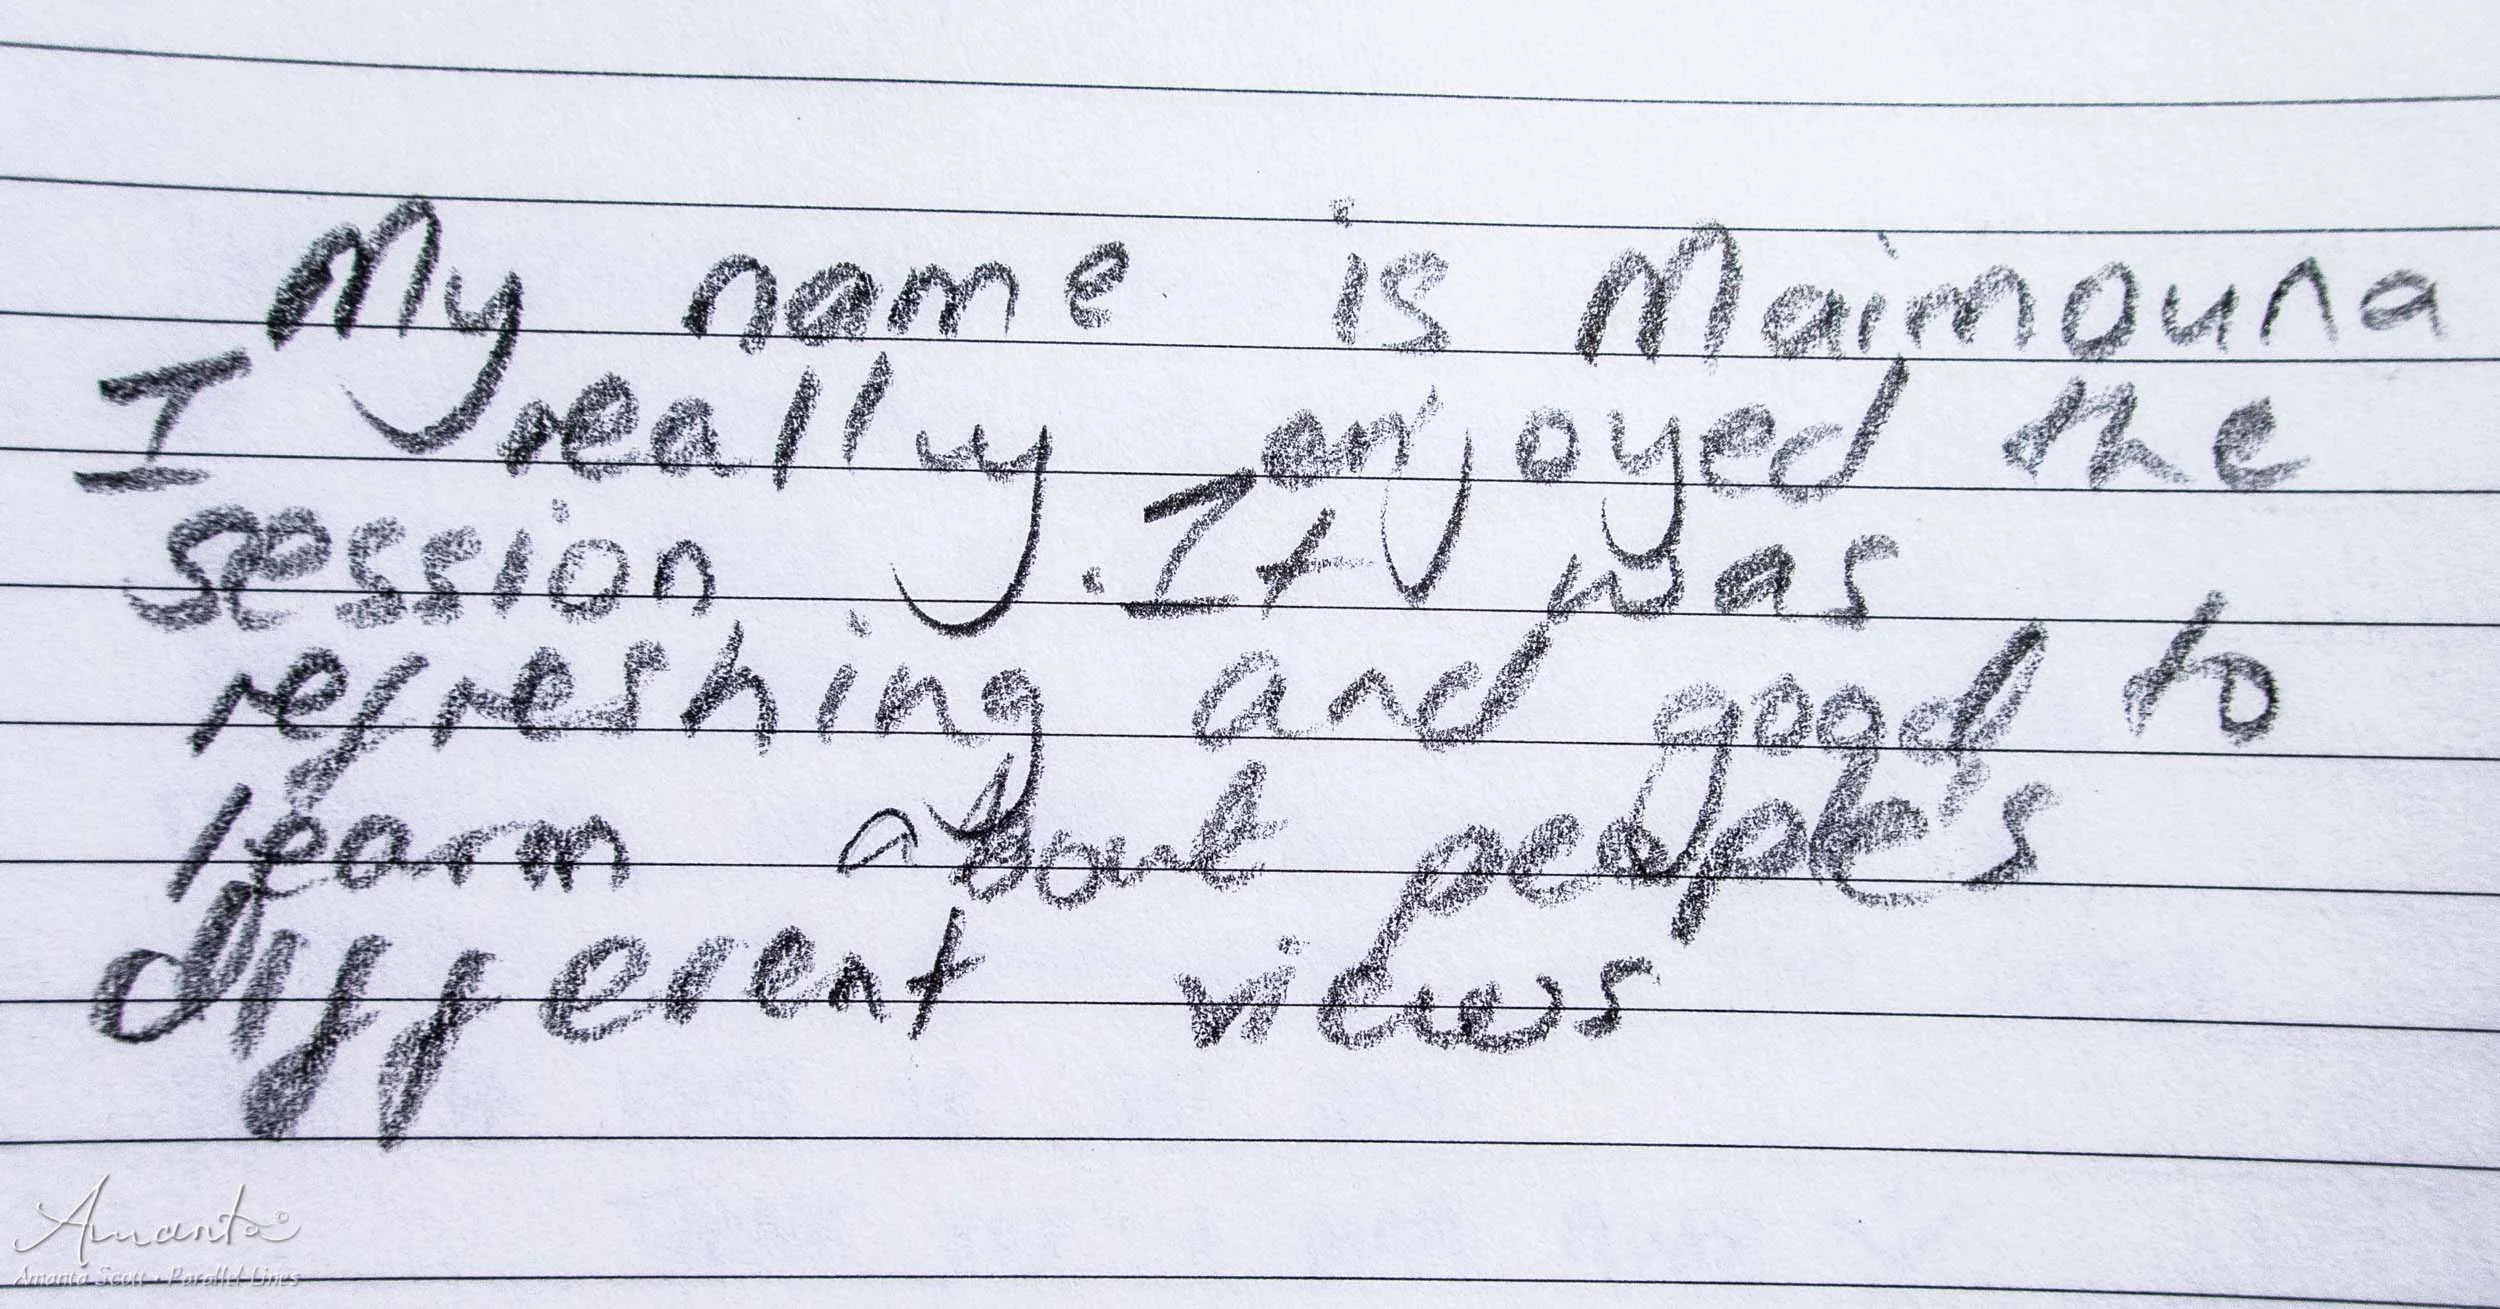 My name is Maimouna
I really enjoyed the
session . It was
refreshing and good to
learn about people's
different views
Amanta©
Amanta Scott · Parallel Lines